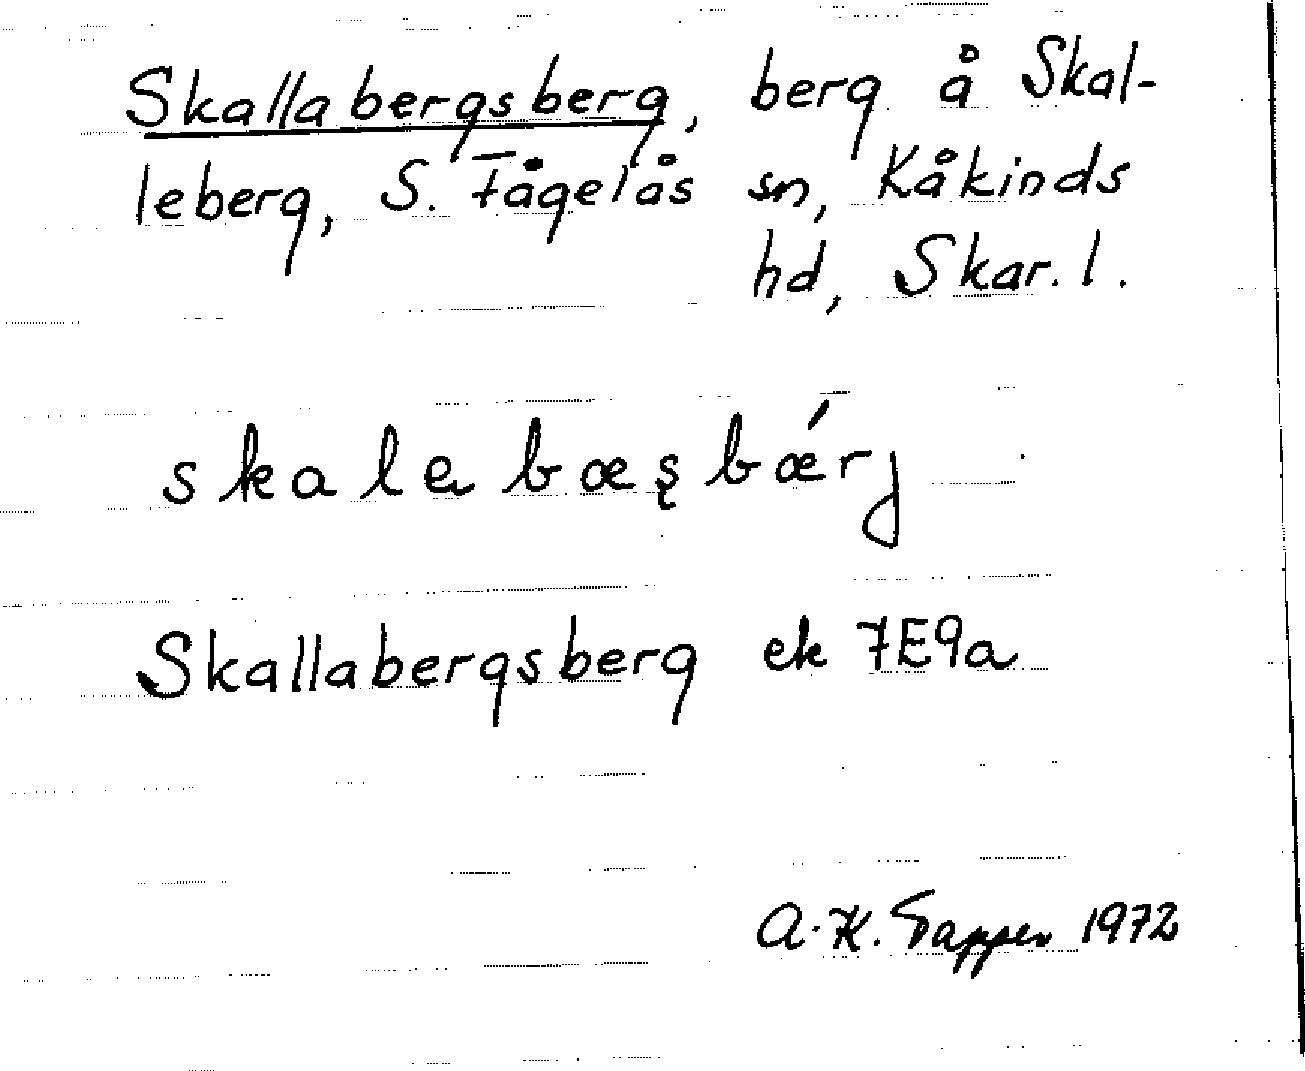 Skallabergsberg, berg å Skal-
leberg, S. Fågelås sn, Kåkinds
hd, Skar. l.
skalabæʂbǽrj
Skallabergsberg ek 7E9a
A.-K. Tappen 1972